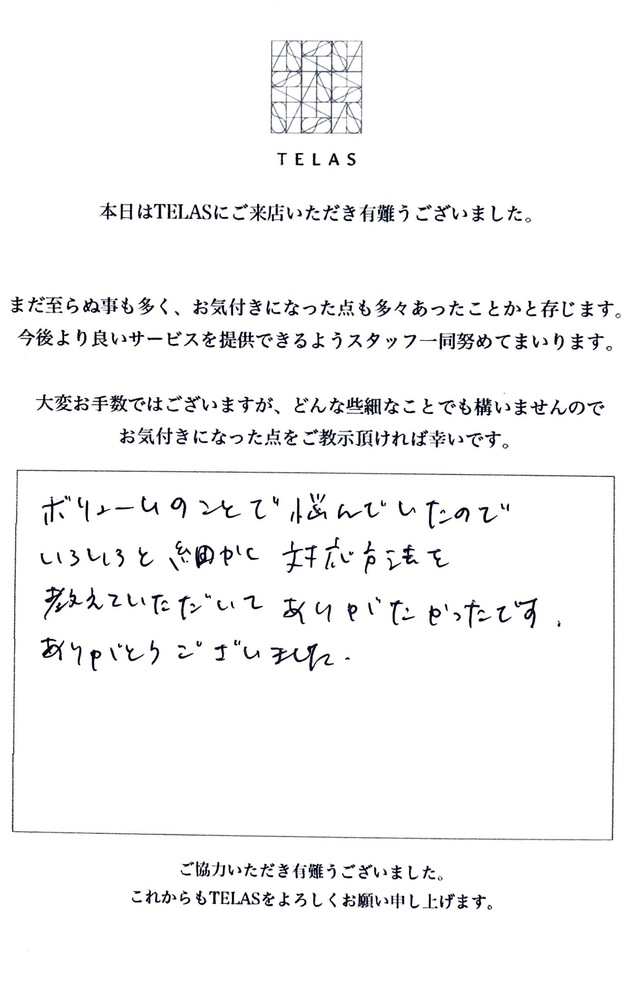 TELAS
本日はTELASにご来店いただき有難うございました。
まだ至らぬ事も多く、お気付きになった点も多々あったことかと存じます。
今後より良いサービスを提供できるようスタッフ一同努めてまいります。
大変お手数ではございますが、どんな些細なことでも構いませんので
お気付きになった点をご教示頂ければ幸いです。
ボリュームのことで悩んでいたので
いろいろと細かく対応方法を
教えていただいてありがたかったです.
ありがとうございました.
ご協力いただき有難うございました。
これからもTELASをよろしくお願い申し上げます。